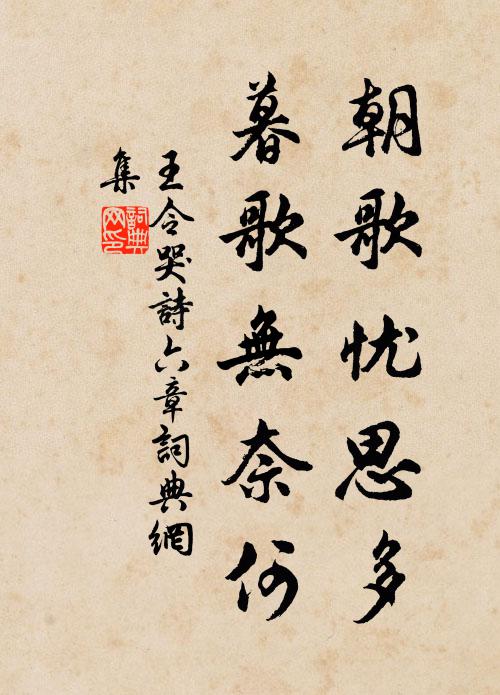 朝歌忧思多
暮歌無奈何
王令哭詩六章詞典網
集
詞典网印